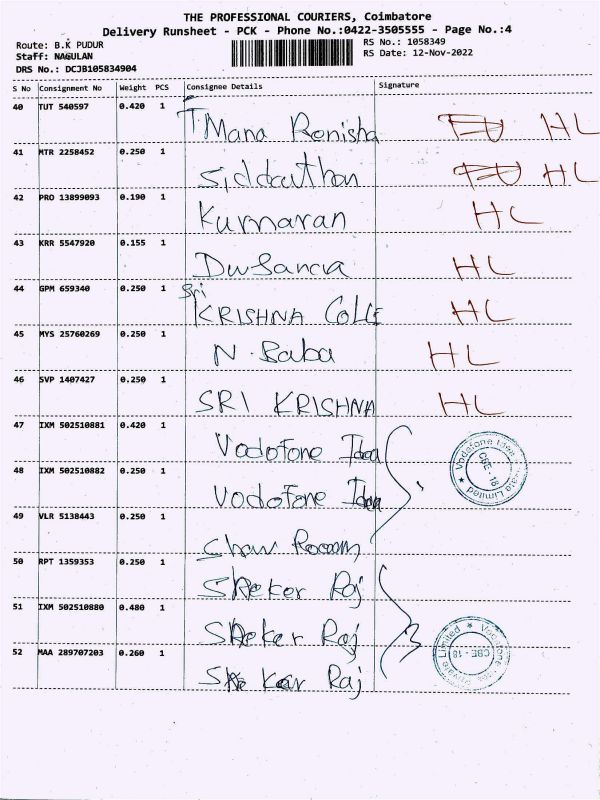 THE PROFESSIONAL COURIERS, Coimbatore
Delivery Runsheet - PCK - Phone No.:0422-3505555 - Page No.:4
Route: B.K PUDUR
RS No.: 1058349
Staff: NAGULAN
RS Date: 12-Nov-2022
DRS No.: DCJB105834904
S No Consignment No Weight PCS Consignee Details Signature
40 TUT 540597 0.420 1 T Mana Renisha HL
41 MTR 2258452 0.250 1 Siddarthan HL
42 PRO 13899093 0.190 1 Kumaran HL
43 KRR 5547920 0.155 1 HL
44 GPM 659340 0.250 1 Sri KRISHNA COLLE HL
45 MYS 25760269 0.250 1 N. Baba HL
46 SVP 1407427 0.250 1 SRI KRISHNA HL
47 IXM 502510881 0.420 1 Vodofone Idea
48 IXM 502510882 0.250 1 Vodofone Idea
49 VLR 5138443 0.250 1
50 RPT 1359353 0.250 1 Sheker Raj
51 IXM 502510880 0.480 1 Sheker Raj
52 MAA 289707203 0.260 1 Raj
Vodafone Idea
Limited
CBE - 18
Vodafone
Limited
CBE - 18